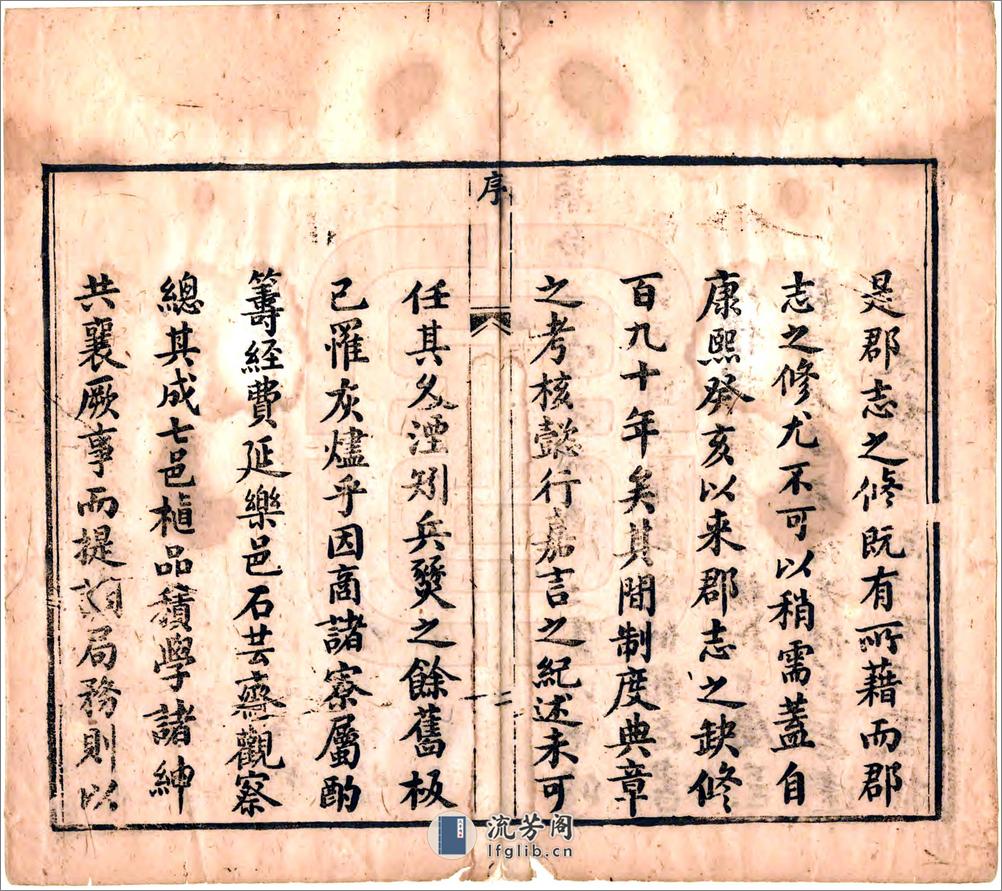 是郡志之修既有所藉而郡
志之修尤不可以稍需蓋自
康熙癸亥以来郡志之缺修
百九十年矣其間制度典章
之考核懿行嘉言之紀述未可
任其久湮矧兵燹之餘舊板
已罹灰燼乎因商諸寮屬酌
籌經費延樂邑石芸齋觀察
總其成七邑植品積學諸紳
共襄厥事而提調局務則以
序
二
流芳阁
lfglib.cn